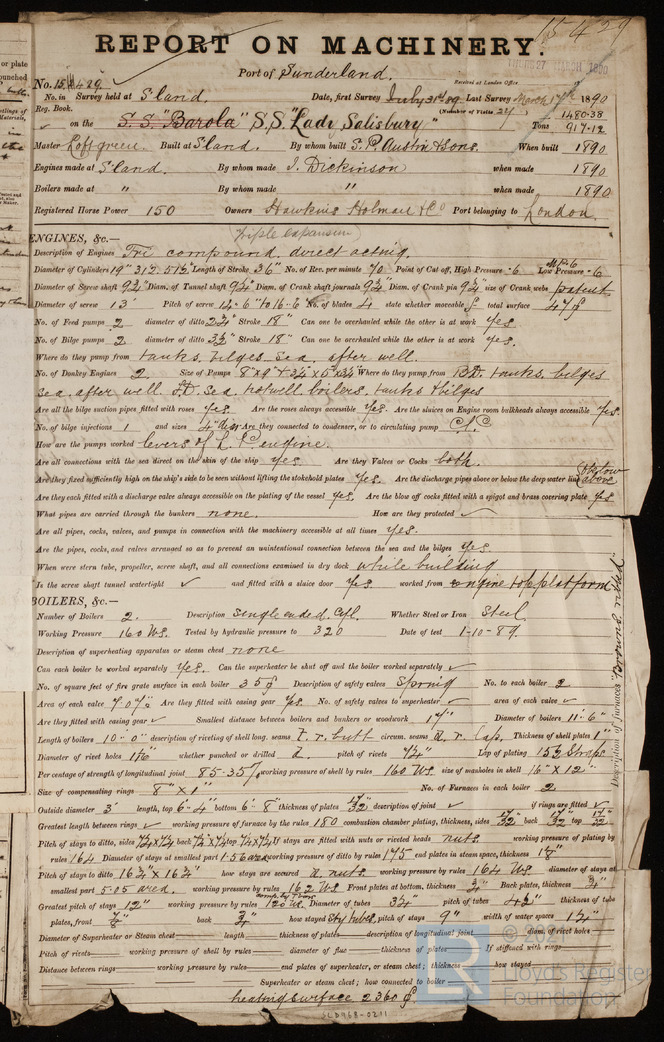 15429
REPORT ON MACHINERY.
Port of Sunderland.
Received at London Office
THURS 27 MARCH 1890
No. 15429
No. in Survey held at S'land. Date, first Survey July 31st 89 Last Survey March 17th 1890
Reg. Book. (Number of Visits 24)
on the S.S. "Barola" S.S. "Lady Salisbury" Tons 1480.38
917.12
Master Loftgreen. Built at S'land. By whom built S. P. Austin & Sons. When built 1890
Engines made at S'land. By whom made J. Dickinson when made 1890
Boilers made at " By whom made " when made 1890
Registered Horse Power 150 Owners Hawkins Holman & Co Port belonging to London.
ENGINES, &c.—
triple expansion
Description of Engines Tri compound, direct acting.
Diameter of Cylinders 19" 31½ 51½" Length of Stroke 36" No. of Rev. per minute 70 Point of Cut off, High Pressure .6 Low Pressure .6
MP .6
Diameter of Screw shaft 9¾" Diam. of Tunnel shaft 9¾" Diam. of Crank shaft journals 9¾" Diam. of Crank pin 9¾" size of Crank webs patent
Diameter of screw 13' Pitch of screw 14-6" to 16-6" No. of blades 4 state whether moveable total surface 47
No. of Feed pumps 2 diameter of ditto 2¾" Stroke 18" Can one be overhauled while the other is at work yes.
No. of Bilge pumps 2 diameter of ditto 3½" Stroke 18" Can one be overhauled while the other is at work yes.
Where do they pump from tanks, bilges sea. after well.
No. of Donkey Engines 2. Size of Pumps Where do they pump from BD. tanks, bilges
sea, after well. FD. sea, hotwell, boilers, tanks & bilges
Are all the bilge suction pipes fitted with roses yes. Are the roses always accessible yes. Are the sluices on Engine room bulkheads always accessible yes.
No. of bilge injections 1 and sizes 4" diar Are they connected to condenser, or to circulating pump C.P.
How are the pumps worked levers of L.P. engine.
Are all connections with the sea direct on the skin of the ship yes Are they Valves or Cocks both.
Are they fixed sufficiently high on the ship's side to be seen without lifting the stokehold plates yes. Are the discharge pipes above or below the deep water line above
Are they each fitted with a discharge valve always accessible on the plating of the vessel yes. Are the blow off cocks fitted with a spigot and brass covering plate yes
What pipes are carried through the bunkers none. How are they protected ✓
Are all pipes, cocks, valves, and pumps in connection with the machinery accessible at all times yes.
Are the pipes, cocks, and valves arranged so as to prevent an unintentional connection between the sea and the bilges yes.
When were stern tube, propeller, screw shaft, and all connections examined in dry dock while building
Is the screw shaft tunnel watertight ✓ and fitted with a sluice door yes. worked from engine top platform
BOILERS, &c.—
Number of Boilers 2. Description single ended. Cyl. Whether Steel or Iron Steel
Working Pressure 160 lbs. Tested by hydraulic pressure to 320 Date of test 1-10-89.
Description of superheating apparatus or steam chest none
Can each boiler be worked separately yes. Can the superheater be shut off and the boiler worked separately ✓
No. of square feet of fire grate surface in each boiler 35 Description of safety valves Spring No. to each boiler 2
Area of each valve 7.07" Are they fitted with easing gear yes. No. of safety valves to superheater ✓ area of each valve ✓
Are they fitted with easing gear ✓ Smallest distance between boilers and bunkers or woodwork 17" Diameter of boilers 11'-6"
Length of boilers 10-0" description of riveting of shell long. seams T. r. butt circum. seams d. r. lap. Thickness of shell plates 1"
Diameter of rivet holes 1 1/16" whether punched or drilled d. pitch of rivets 7¼" Lap of plating 15¾ Straps
Per centage of strength of longitudinal joint 85.35% working pressure of shell by rules 160 lbs. size of manholes in shell 16" x 12"
Size of compensating rings 8" x 1" No. of Furnaces in each boiler 2
Outside diameter 3' length, top 6'-4" bottom 6'-8" thickness of plates 17/32" description of joint ✓ if rings are fitted ✓
Greatest length between rings ✓ working pressure of furnace by the rules 180 combustion chamber plating, thickness, sides 17/32" back 17/32" top 17/32"
Pitch of stays to ditto, sides back top If stays are fitted with nuts or riveted heads nuts. working pressure of plating by
rules 164 Diameter of stays at smallest part 1.56 area working pressure of ditto by rules 175 end plates in steam space, thickness 1⅛"
Pitch of stays to ditto 16¾" x 16¾" how stays are secured d. nuts. working pressure by rules 164 lbs. diameter of stays at
smallest part 5.05 area. working pressure by rules 162 lbs Front plates at bottom, thickness ¾" Back plates, thickness ¾"
Greatest pitch of stays 12" working pressure by rules 120 lbs. Diameter of tubes 3¼" pitch of tubes 4½" thickness of tube
plates, front ⅞" back ¾" how stayed stay tubes, pitch of stays 9" width of water spaces 1¼"
Diameter of Superheater or Steam chest length thickness of plates description of longitudinal joint diam. of rivet holes
Pitch of rivets working pressure of shell by rules diameter of flue thickness of plates If stiffened with rings
Distance between rings working pressure by rules end plates of superheater, or steam chest; thickness how stayed
Superheater or steam chest; how connected to boiler
heating surface 2360
Description of furnaces "Browns ribbed"
SLD968-0211
LR
Lloyd's Register
Foundation